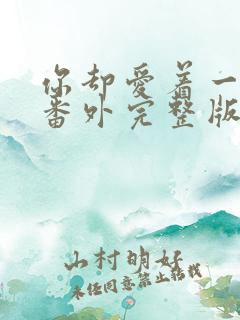 你却爱着一
番外完整版
山村明好
未经同意禁止转载